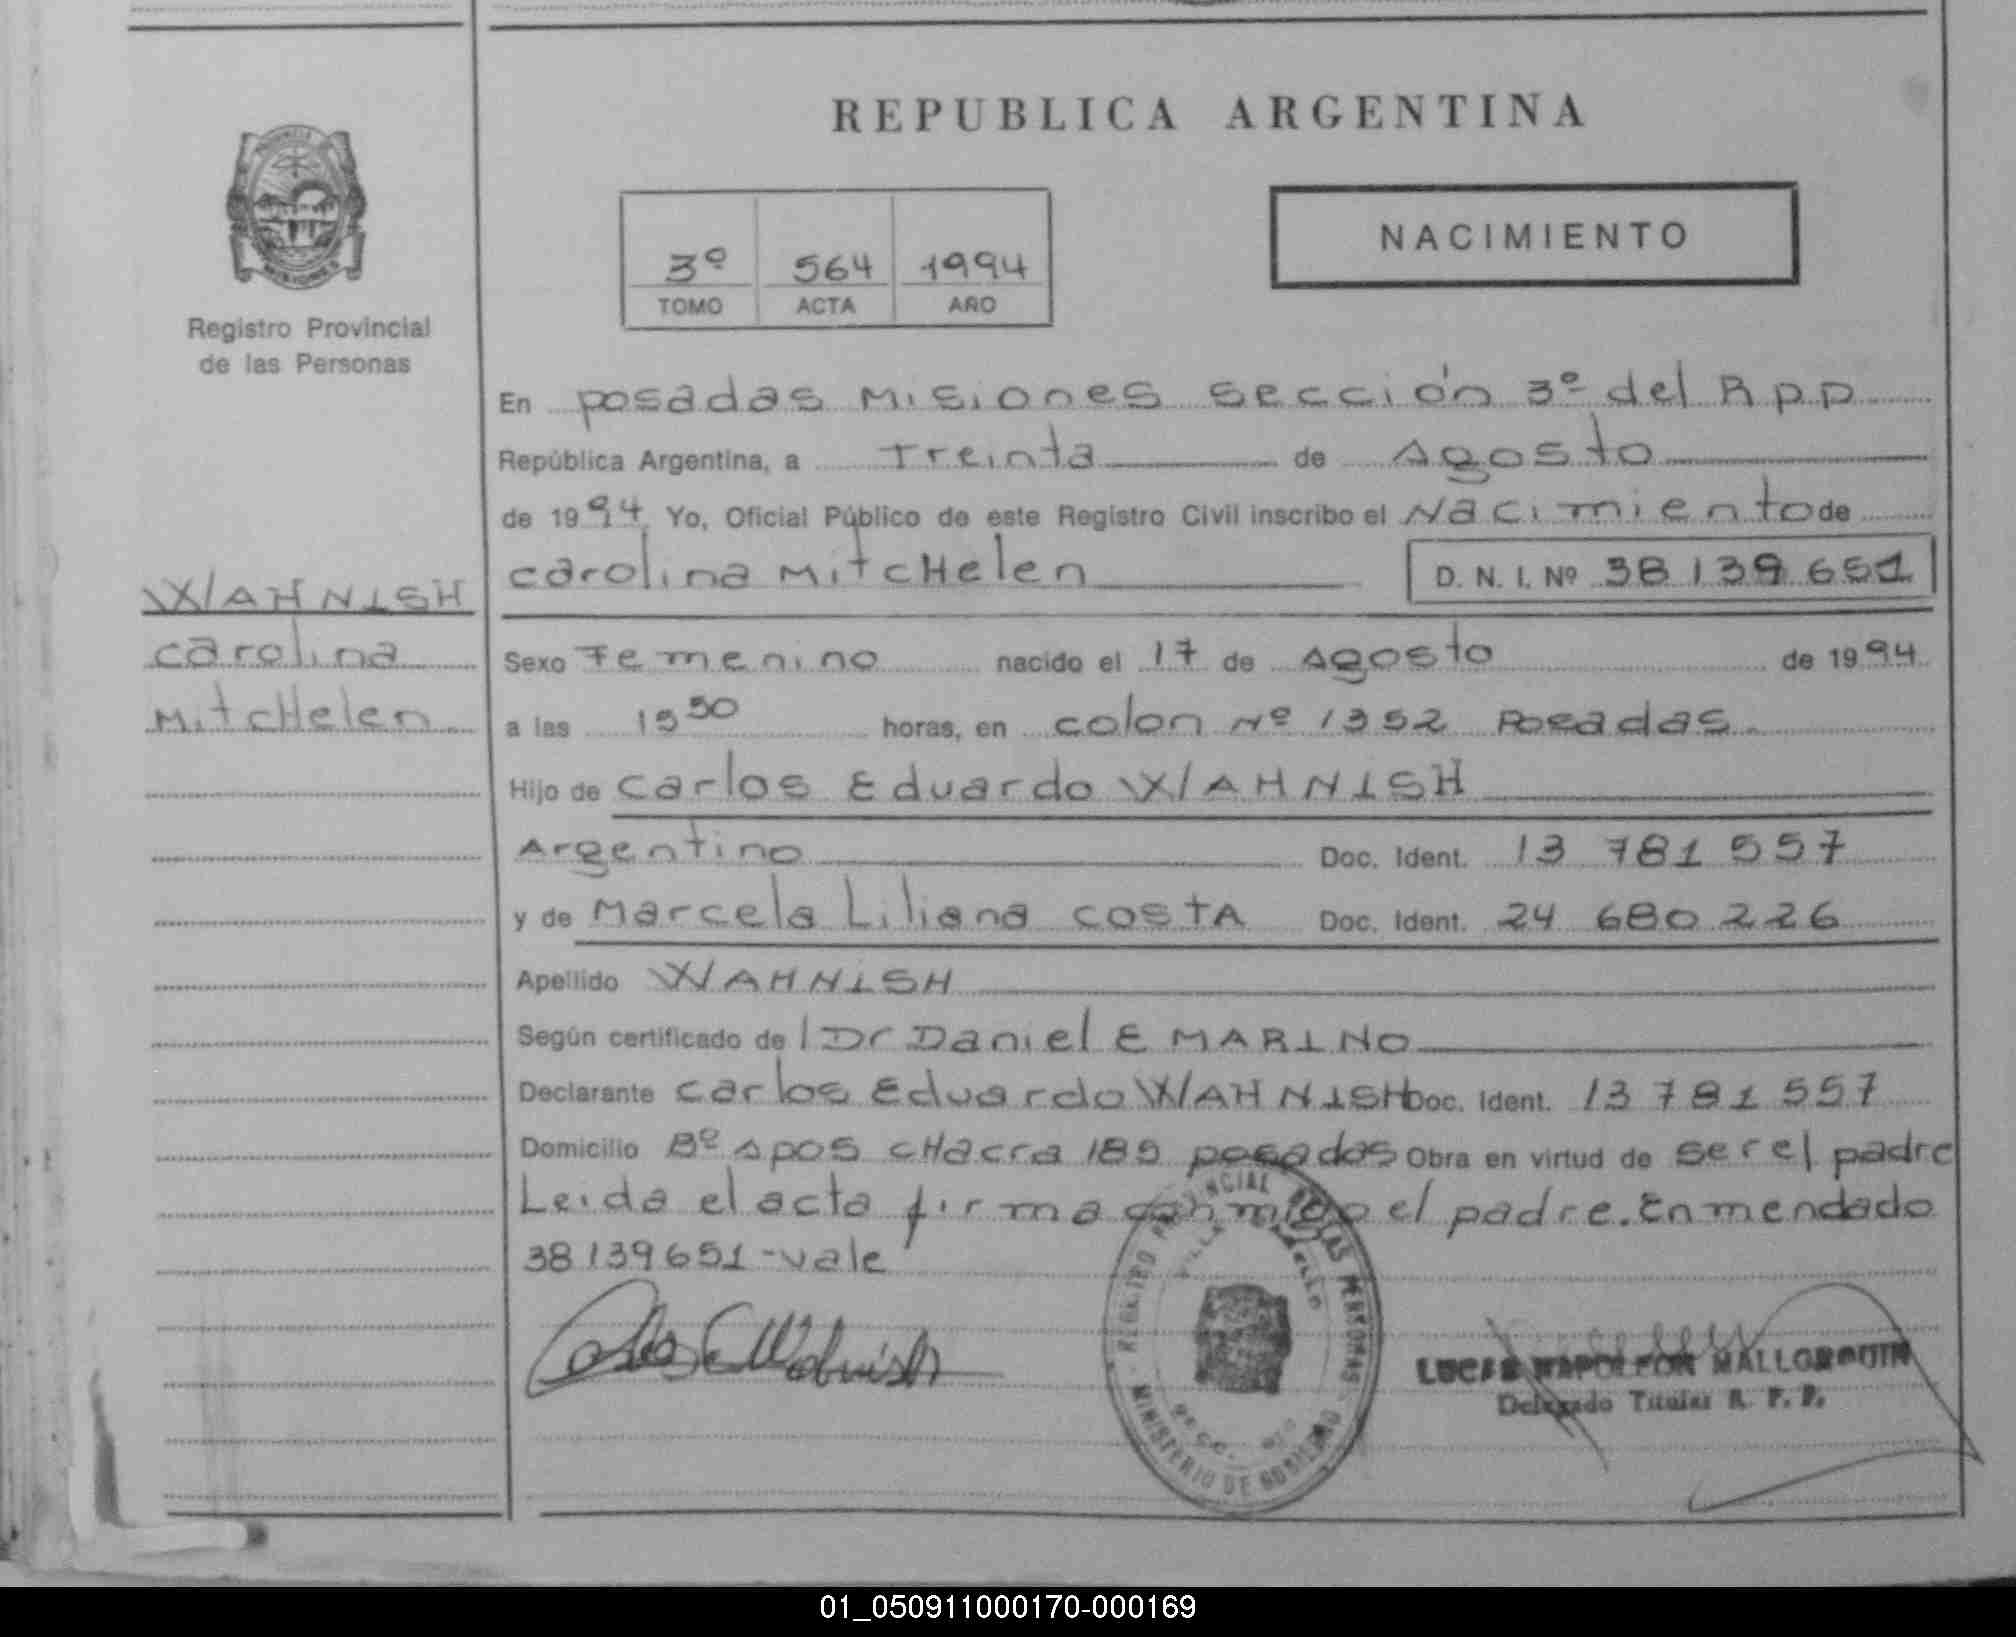 REPUBLICA ARGENTINA
NACIMIENTO
3º 564 1994
TOMO ACTA AÑO
Registro Provincial
de las Personas
WAHNISH
Carolina
MitcHelen
En posadas Misiones Sección 3º del R p p
República Argentina, a Treinta de Agosto
de 1994 Yo, Oficial Público de este Registro Civil inscribo el Nacimiento de
Carolina MitcHelen D. N. I. Nº 38 139 651
Sexo Femenino nacido el 17 de Agosto de 1994
a las horas, en colon Nº 1352 Posadas
Hijo de Carlos Eduardo WAHNISH
Argentino Doc. Ident. 13 781 557
y de Marcela Liliana COSTA Doc. Ident. 24 680 226
Apellido WAHNISH
Según certificado de l Dr Daniel E MARINO
Declarante Carlos Eduardo WAHNISH Doc. Ident. 13 781 557
Domicilio Bº Apos cHacra 189 posadas Obra en virtud de ser el padre
Leida el acta firma conmigo el padre. Enmendado
38139651-vale
REGISTRO PROVINCIAL DE LAS PERSONAS
MINISTERIO DE GOBIERNO
LUCAS NAPOLEON MALLORQUIN
Delegado Titular R. P. P.
01_050911000170-000169